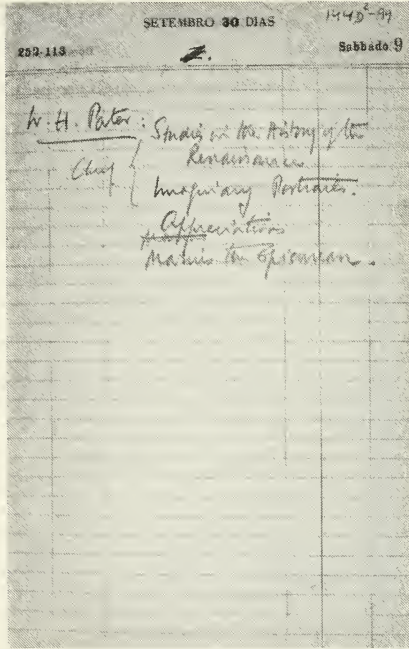 144D²-99
SETEMBRO 30 DIAS
252-113
Sabbado 9
2.
W. H. Pater: Studies in the History of the
Renaissance
Chief
Imaginary Portraits.
Appreciations
Marius the Epicurean.